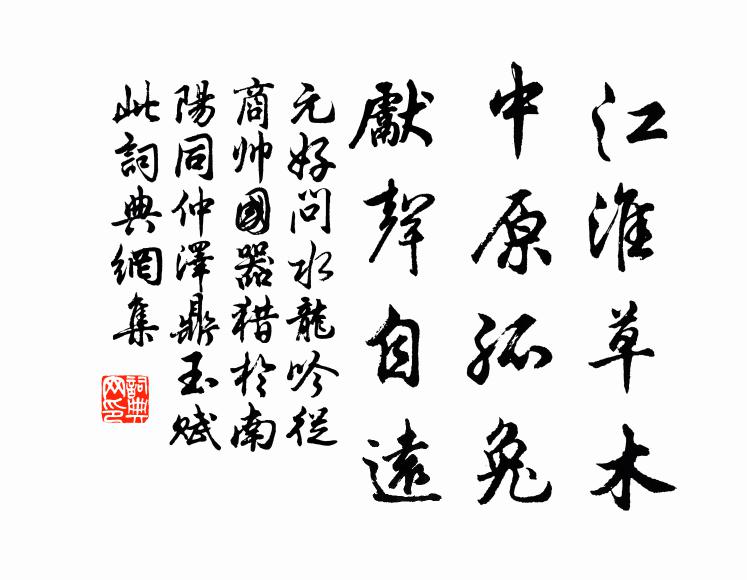 江淮草木
中原狐兔
獻聲自遠
元好问水龍吟從
商帅國器猎於南
陽同仲澤鼎玉賦
此詞典網集
詞典网印